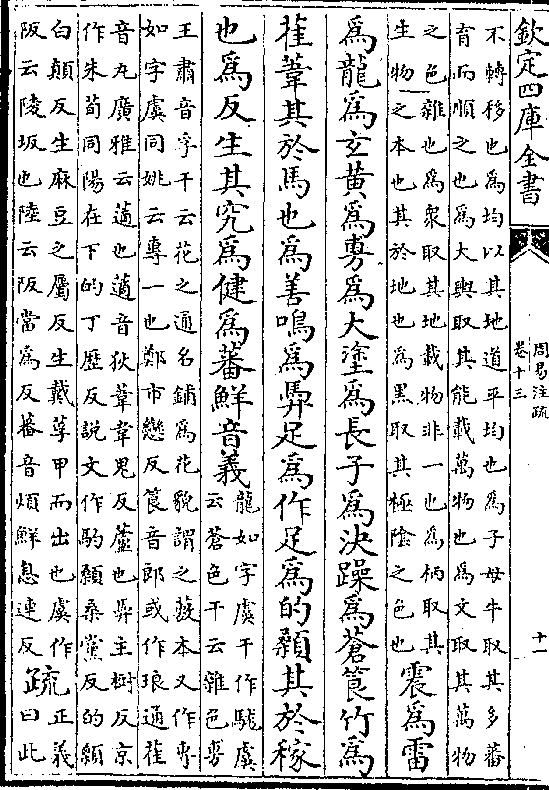 欽定四庫全書
周易注疏
卷十三
十一
不轉移也為均以其地道平均也為子母牛取其多蕃
育而順之也為大輿取其能載萬物也為文取其萬物
之色雜也為衆取其地載物非一也為柄取其
生物之本也其於地也為黑取其極陰之色也
震為雷
為龍為玄黄為旉為大塗為長子為決躁為蒼筤竹為
萑葦其於馬也為善鳴為馵足為作足為的顙其於稼
也為反生其究為健為蕃鮮音義
龍如字虞干作駹虞
云蒼色干云雜色旉
王肅音孚干云花之通名鋪為花貌謂之蔽本又作専
如字虞同姚云專一也鄭市戀反筤音郎或作琅通萑
音丸廣雅云䓆也䓆音狄葦韋鬼反蘆也馵主樹反京
作朱荀同陽在下的丁歷反說文作馰顙桑黨反的顙
白顛反生麻豆之屬反生戴莩甲而出也虞作
阪云陵坂也陸云阪當為反蕃音煩鮮息連反
疏
正義
曰此